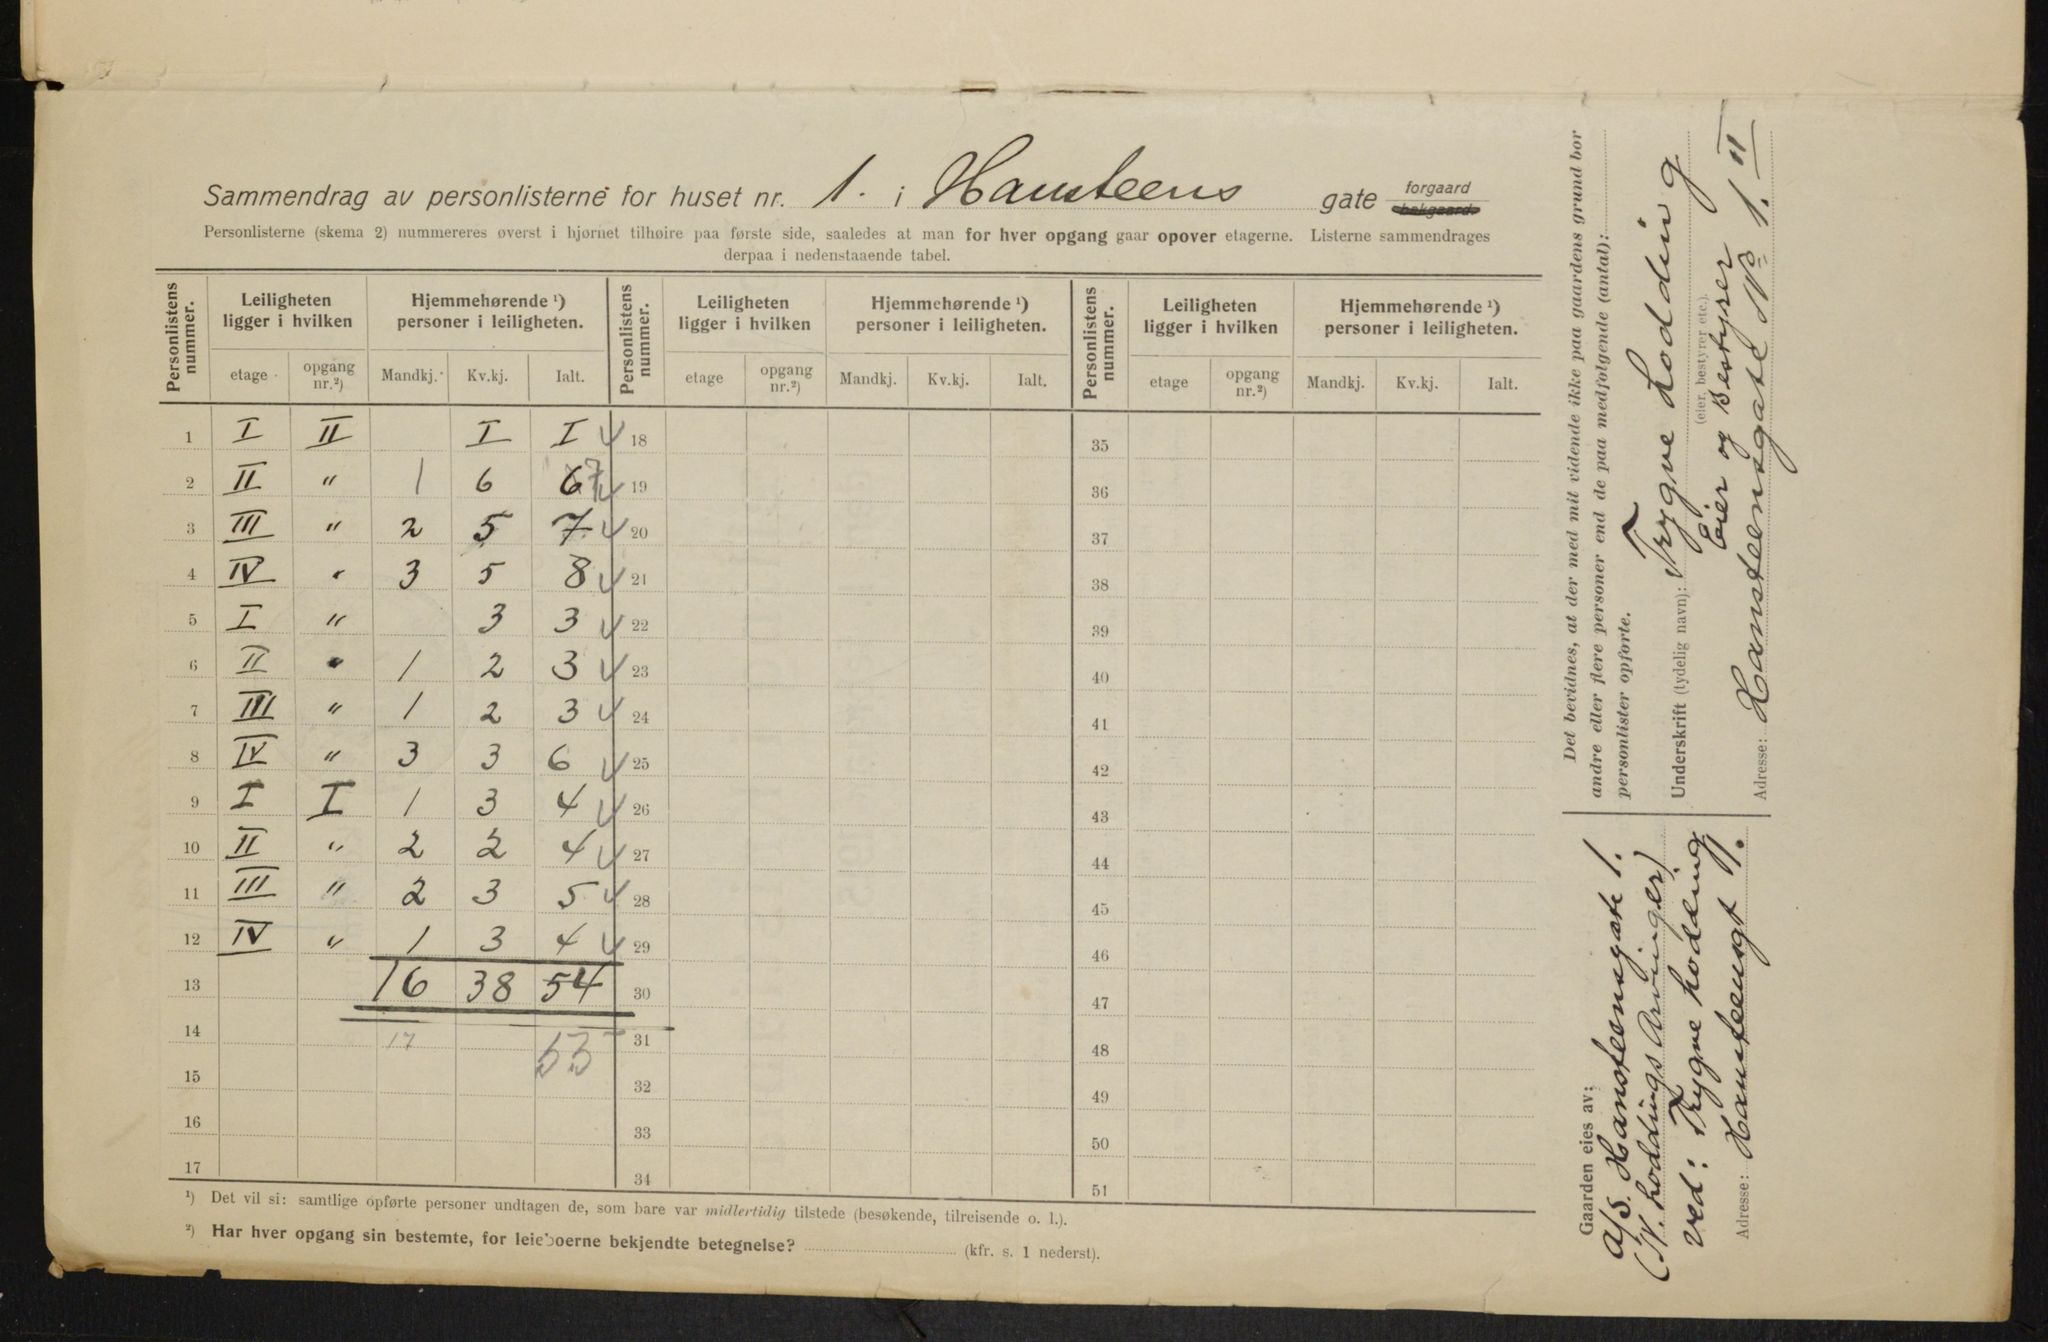 Sammendrag av personlisterne for huset nr. 1. i Hansteens gate forgaard bakgaard.
Personlisterne (skema 2) nummereres øverst i hjørnet tilhøire paa første side, saaledes at man for hver opgang gaar opover etagerne. Listerne sammendrages
derpaa i nedenstaaende tabel.
Personlistens nummer. Leiligheten ligger i hvilken Hjemmehørende ¹) personer i leiligheten. Personlistens nummer. Leiligheten ligger i hvilken Hjemmehørende ¹) personer i leiligheten. Personlistens nummer. Leiligheten ligger i hvilken Hjemmehørende ¹) personer i leiligheten.
etage opgang nr.²) Mandkj. Kv.kj. Ialt. etage opgang nr.²) Mandkj. Kv.kj. Ialt. etage opgang nr.²) Mandkj. Kv.kj. Ialt.
1 I II I I 18 35
2 II " 1 6 6 7 19 36
3 III " 2 5 7 20 37
4 IV " 3 5 8 21 38
5 I " 3 3 22 39
6 II " 1 2 3 23 40
7 III " 1 2 3 24 41
8 IV " 3 3 6 25 42
9 I I 1 3 4 26 43
10 II " 2 2 4 27 44
11 III " 2 3 5 28 45
12 IV " 1 3 4 29 46
13 16 38 54 30 47
14 17 55 31 48
15 32 49
16 33 50
17 34 51
¹) Det vil si: samtlige opførte personer undtagen de, som bare var midlertidig tilstede (besøkende, tilreisende o. l.).
²) Har hver opgang sin bestemte, for leieboerne bekjendte betegnelse? (kfr. s. 1 nederst).
Det bevidnes, at der med mit vidende ikke paa gaardens grund bor
andre eller flere personer end de paa medfølgende (antal):
personlister opførte.
Underskrift (tydelig navn): Trygve Lodding
(eier, bestyrer etc.).
Eier og Bestyrer
Adresse: Hansteensgate No 1. II
Gaarden eies av:
A/S. Hansteensgate 1.
(N. Loddings Arvinger)
ved: Trygve Lodding
Adresse: Hansteensgt 1.